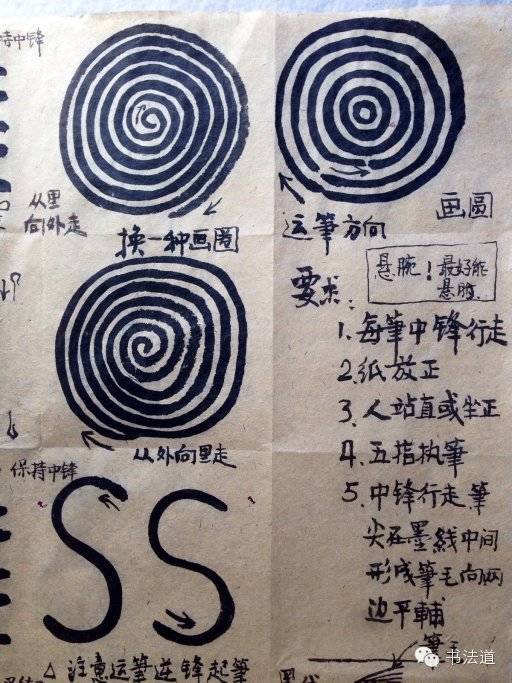 持中锋
从里
向外走
换一种画圈
运筆方向
画圆
悬腕！最好能
悬肘.
要求：
1. 每筆中锋行走
2. 纸放正
3. 人站直或坐正
4. 五指执筆
5. 中锋行走筆
尖在墨线中间
形成筆毛向两
边平輔
从外向里走
保持中锋
△ 注意运筆逆锋起筆
书法道